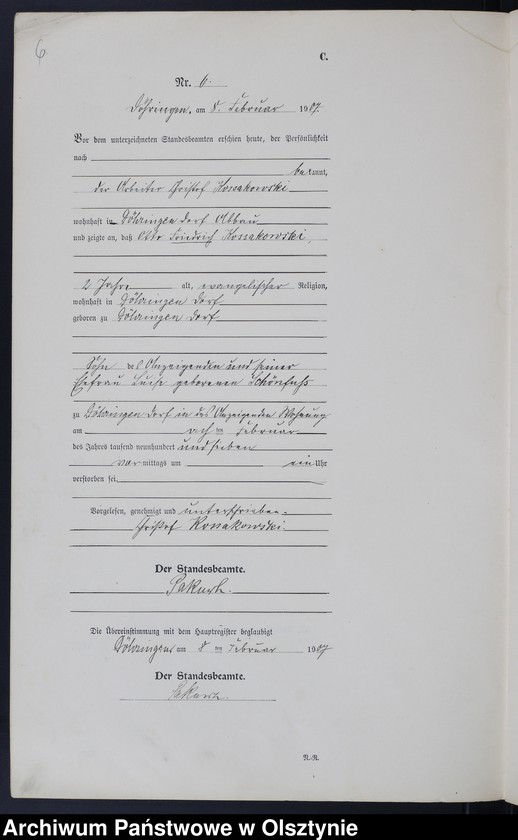 6
C.
Nr. 6.
Döhringen, am 8. Februar 1907
Vor dem unterzeichneten Standesbeamten erschien heute, der Persönlichkeit
nach
bekannt,
der Arbeiter Christof Kossakowski
wohnhaft in Döhringen Dorf Abbau
und zeigte an, daß Otto Friedrich Kossakowski,
2 Jahre alt, evangelischer Religion,
wohnhaft in Döhringen Dorf
geboren zu Döhringen Dorf
Sohn des Anzeigenden und seiner
Ehefrau Luise geborenen Schönfuhs
zu Döhringen Dorf in des Anzeigenden Wohnung
am acht ten Februar
des Jahres tausend neunhundert und sieben
vor mittags um ein Uhr
verstorben sei.
Vorgelesen, genehmigt und unterschrieben.
Christof Kossakowski.
Der Standesbeamte.
Die Übereinstimmung mit dem Hauptregister beglaubigt
Döhringen am 8 ten Februar 1907
Der Standesbeamte.
N.-R.
Archiwum Państwowe w Olsztynie